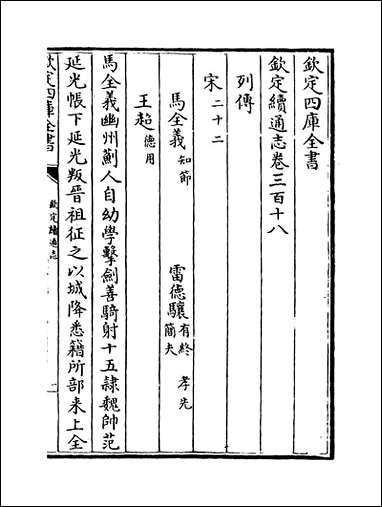 欽定四庫全書
欽定續通志卷三百十八
列傳
宋二十二
馬全義知節 雷德驤有終 孝先 簡夫
王超德用
馬全義幽州薊人自幼學擊劍善騎射十五隸魏帥范
延光帳下延光叛晉祖征之以城降悉籍所部来上全
欽定四庫全書
欽定續通志